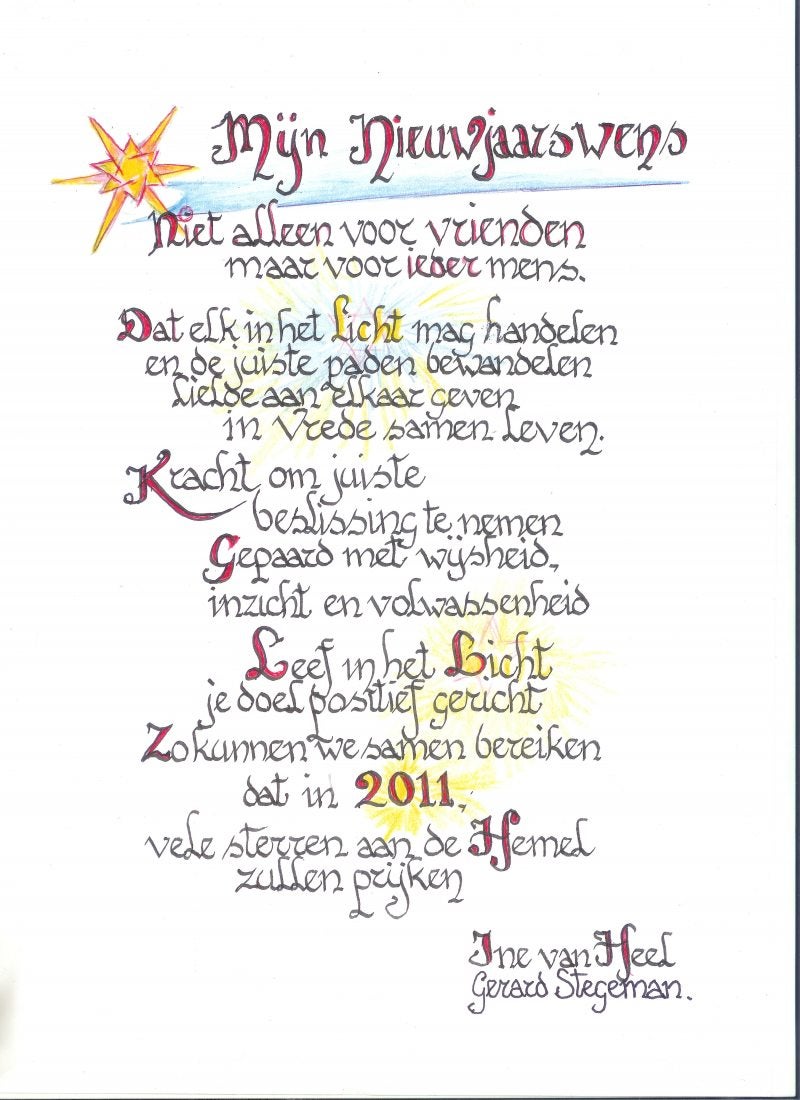 Mijn Nieuwjaarswens
Niet alleen voor vrienden
maar voor ieder mens.
Dat elk in het Licht mag handelen
en de juiste paden bewandelen
Liefde aan elkaar geven
in Vrede samen Leven.
Kracht om juiste
beslissing te nemen
Gepaard met wijsheid,
inzicht en volwassenheid
Leef in het Licht
je doel positief gericht
Zo kunnen we samen bereiken
dat in 2011,
vele sterren aan de Hemel
zullen prijken
Ine van Heel
Gerard Stegeman.